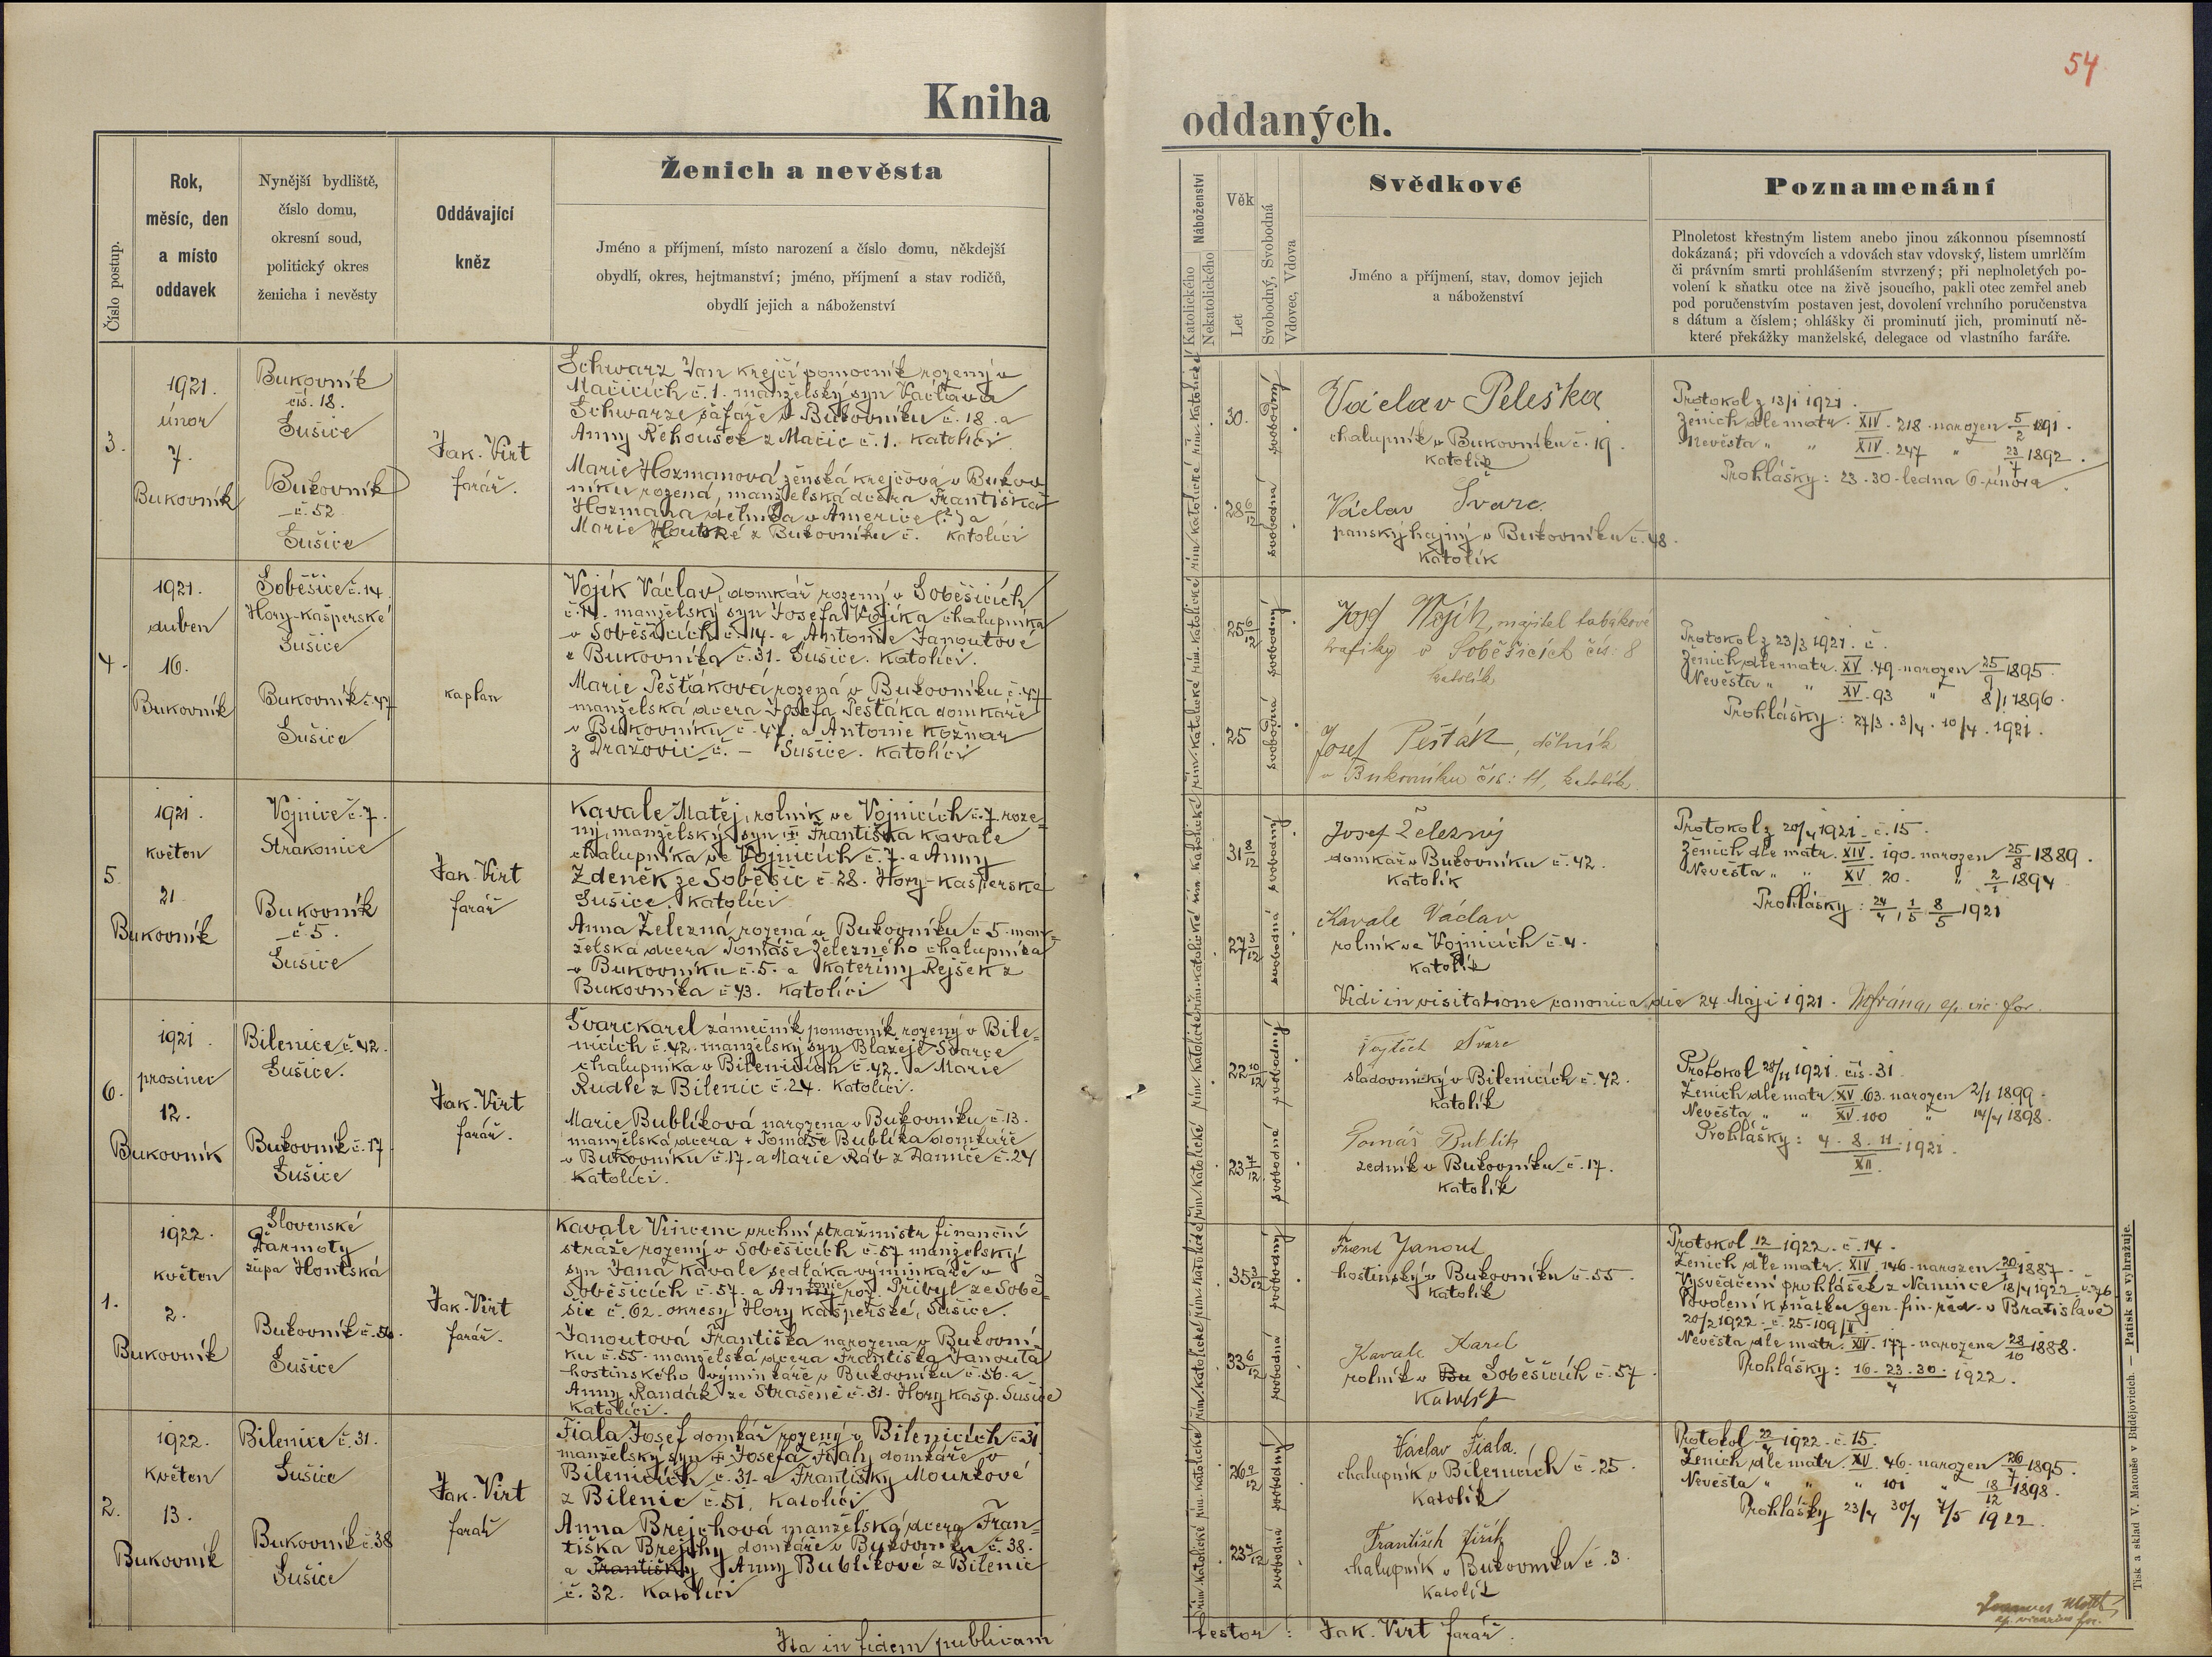 54
Kniha oddaných.
Číslo postup.
Rok,
měsíc, den
a místo
oddavek
Nynější bydliště,
číslo domu,
okresní soud,
politický okres
ženicha i nevěsty
Oddávající
kněz
Ženich a nevěsta
Jméno a příjmení, místo narození a číslo domu, někdejší
obydlí, okres, hejtmanství; jméno, příjmení a stav rodičů,
obydlí jejich a náboženství
Náboženství
Katolického
Nekatolického
Věk
Let
Svobodný, Svobodná
Vdovec, Vdova
Svědkové
Jméno a příjmení, stav, domov jejich
a náboženství
Poznamenání
Plnoletost křestným listem anebo jinou zákonnou písemností
dokázaná; při vdovcích a vdovách stav vdovský, listem umrlčím
či právním smrti prohlášením stvrzený; při neplnoletých po-
volení k sňatku otce na živě jsoucího, pakli otec zemřel aneb
pod poručenstvím postaven jest, dovolení vrchního poručenstva
s dátum a číslem; ohlášky či prominutí jich, prominutí ně-
které překážky manželské, delegace od vlastního faráře.
3.
1921.
únor
7.
Bukovník
Bukovník
čís. 18.
Sušice
Bukovník
č. 52
Sušice
Jak. Virt
farář.
Schwarz Jan krejčí pomocník rozený v
Mačicích č. 1. manželský syn Václava
Schwarze šafáře v Bukovníku č. 18. a
Anny Řehoušek z Mačic č. 1. katolíci
Marie Hozmanová ženská krejčová v Bukov
níku rozená, manželská dcera Františka
Hozmana dělníka v Americe (?) a
Marie Houtské z Bukovníku č. katolíci
řím. katolické
30.
svobodný
28 6/12
svobodná
Václav Peleška
chalupník v Bukovníku č. 19.
katolík
Václav Švarc.
panský hajný v Bukovníku č. 48.
katolík
Protokol z 13/1 1921.
Ženich dle matr. XIV. 218. narozen 5/2 1891.
Nevěsta " " XIV. 247 " 23/7 1892.
Prohlášky: 23. 30. ledna 6. února.
4.
1921.
duben
16.
Bukovník
Soběšice č. 14
Hory-kašperské
Sušice
Bukovník č. 47
Sušice
kaplan
Vojík Václav, domkář rozený v Soběšicích
č. 14. manželský syn Josefa Vojíka chalupníka
v Soběšicích č. 14. a Antonie Janoutové
z Bukovníka č. 31. Sušice. katolíci.
Marie Pešťáková rozená v Bukovníku č. 47
manželská dcera Josefa Pešťáka domkáře
v Bukovníku č. 47. a Antonie Kožnar
z Dražovic č. – Sušice. katolíci
25 6/12
svobodný
25
svobodná
Josef Wojík, majitel tabákové
trafiky v Soběšicích čís: 8
katolík
Josef Pešták, dělník
v Bukovníku čís: 11, katolík.
Protokol z 23/3 1921. č.
Ženich dle matr. XV. 49. narozen 25/9 1895.
Nevěsta " " XV. 93 " 8/1 1896.
Prohlášky: 27/3. 3/4. 10/4. 1921.
5.
1921.
květen
21.
Bukovník
Vojnice č. 7.
Strakonice
Bukovník
č. 5.
Sušice
Jak. Virt
farář
Kavale Matěj, rolník ve Vojnicích č. 7. roze-
ný, manželský syn † Františka Kavale
chalupníka ve Vojnicích č. 7. a Anny
Zdeněk ze Soběšic č. 28. Hory-kašperské
Sušice. katolíci
Anna Železná rozená v Bukovníku č. 5. man-
želská dcera Tomáše Železného chalupníka
v Bukovníku č. 5. a Kateřiny Rejšek z
Bukovníka č. 43. katolíci
svobodný
svobodná
Josef Železný
domkář v Bukovníku č. 42.
katolík
Kavale Václav
rolník ve Vojnicích č. 4.
katolík
Protokol z 20/4 1921. č. 15.
Ženich dle matr. XIV. 190. narozen 25/8 1889.
Nevěsta " " XV. 20. " 2/1 1894
Prohlášky: 24/4, 1/5 8/5 1921
Vidi in visitatione canonica die 24. Maji 1921.
6.
1921
prosinec
12.
Bukovník
Bilenice č. 42.
Sušice.
Bukovník č. 17
Sušice
Jak. Virt
farář.
Švarc Karel zámečník pomocník, rozený v Bile-
nicích č. 42. manželský syn Blažeje Švarce
chalupníka v Bilenicích č. 42. a Marie
Rudle z Bilenic č. 24. katolíci.
Marie Bublíková narozena v Bukovníku č. 13.
manželská dcera + Tomáše Bublíka domkáře
v Bukovníku č. 17. a Marie Ráb z Damíče č. 24
katolíci.
22 10/12
svobodný
23 7/12
svobodná
Vojtěch Švarc
sládovnický v Bilenicích č. 42.
katolík
Tomáš Bublík
zedník v Bukovníku č. 17.
katolík
Protokol 28/11 1921. čís. 31
Ženich dle matr. XV. 63. narozen 2/1 1899.
Nevěsta " " XV. 100 " 14/4 1898.
Prohlášky: 4. 8. 11. / XII. 1921.
1.
1922.
květen
2.
Bukovník
Slovenské
Ďarmoty
župa Hontská
Bukovník č. 56.
Sušice
Jak. Virt
farář.
Kavale Vincenc vrchní strážmistr finanční
stráže rozený v Soběšicích č. 57 manželský
syn Jana Kavale sedláka výminkáře v
Soběšicích č. 57. a Antonie roz. Přibyl ze Sobě-
šic č. 62. okresy Hory kašperské, Sušice.
Janoutová Františka narozena v Bukovní-
ku č. 55. manželská dcera Františka Janouta
hostinského výminkáře v Bukovníku č. 56. a
Anny Randák ze Strašené č. 31. Hory kašp. Sušice
katolíci.
svobodný
33 6/12
svobodná
Frant Janout
hostinský v Bukovníku č. 55.
katolík
Kavale Karel
rolník v Bu Soběšicích č. 57.
katolík
Protokol 12/4 1922. č. 14.
Ženich dle matr. XIV. 146. narozen 20/1 1887.
Vysvědčení prohlášek z Namince 18/4 1922 č. 296
Povolení k sňatku gen. fin. řed. v Bratislavě
20/2 1922. č. 25.109/II
Nevěsta dle matr. XIV. 177. narozena 28/10 1888.
Prohlášky: 16. 23. 30. / 4 1922.
2.
1922.
květen
13.
Bukovník
Bilenice č. 31.
Sušice
Bukovník č. 38
Sušice
Jak. Virt
farář
Fiala Josef domkář rozený v Bilenicích č. 31
manželský syn † Josefa Fialy domkáře v
Bilenicích č. 31. a Františky Mourkové
z Bilenic č. 51. katolíci
Anna Brejchová manželská dcera Fran-
tiška Brejchy domkáře v Bukovníku č. 38.
a Františky Anny Bublíkové z Bilenic
č. 32. katolíci
svobodný
svobodná
Václav Fiala.
chalupník v Bilenicích č. 25.
katolík
František Jiřík
chalupník v Bukovníku č. 3.
katolík
Protokol 22/4 1922. č. 15.
Ženich dle matr. XV. 46. narozen 26/7 1895.
Nevěsta " " " 101 " 18/12 1898.
Prohlášky 23/4 30/4 7/5 1922.
Ita in fidem publicam
testor: Jak. Virt farář.
Tisk a sklad V. Matouše v Budějovicích. — Patisk se vyhražuje.